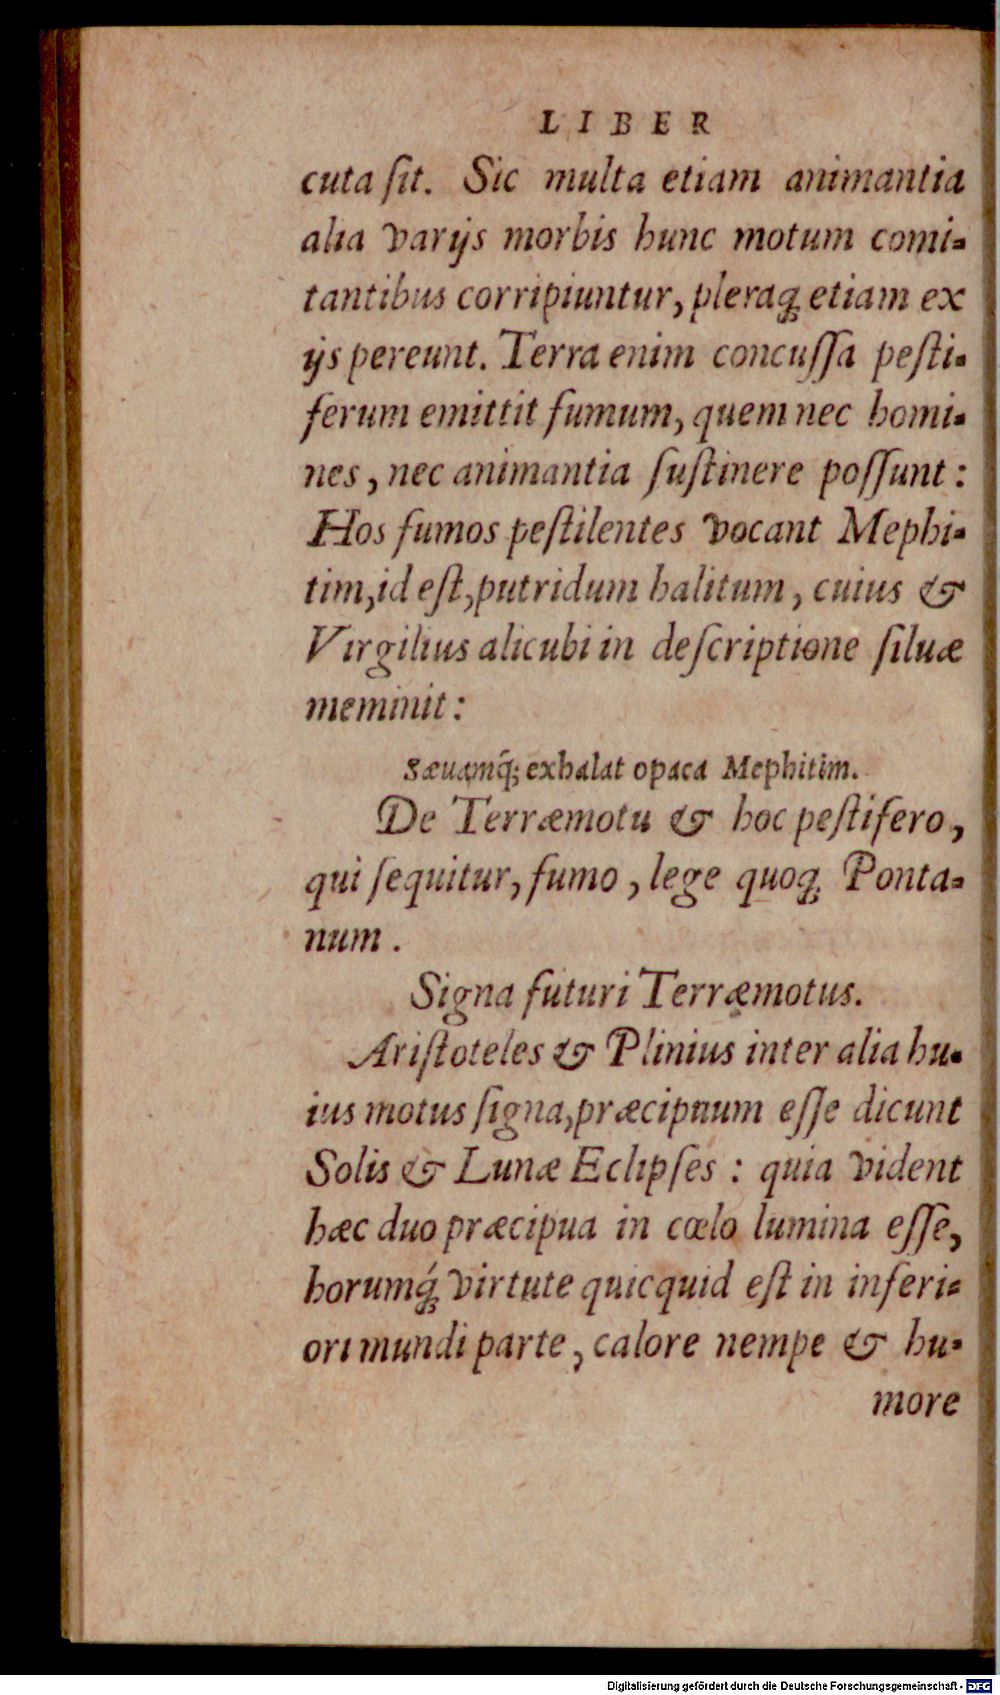 LIBER
cuta ſit. Sic multa etiam animantia
alia varijs morbis hunc motum comi-
tantibus corripiuntur, pleraq; etiam ex
ijs pereunt. Terra enim concuſſa peſti-
ferum emittit fumum, quem nec homi-
nes, nec animantia ſuſtinere poſſunt:
Hos fumos peſtilentes vocant Mephi-
tim, id eſt, putridum halitum, cuius &
Virgilius alicubi in deſcriptione ſiluæ
meminit:
Sæuamq́; exhalat opaca Mephitim.
De Terræmotu & hoc peſtifero,
qui ſequitur, fumo, lege quoq; Ponta-
num.
Signa futuri Terræmotus.
Ariſtoteles & Plinius inter alia hu-
ius motus ſigna, præcipuum eſſe dicunt
Solis & Lunæ Eclipſes: quia vident
hæc duo præcipua in cœlo lumina eſſe,
horumq́; virtute quicquid eſt in inferi-
ori mundi parte, calore nempe & hu-
more
Digitalisierung gefördert durch die Deutsche Forschungsgemeinschaft - DFG